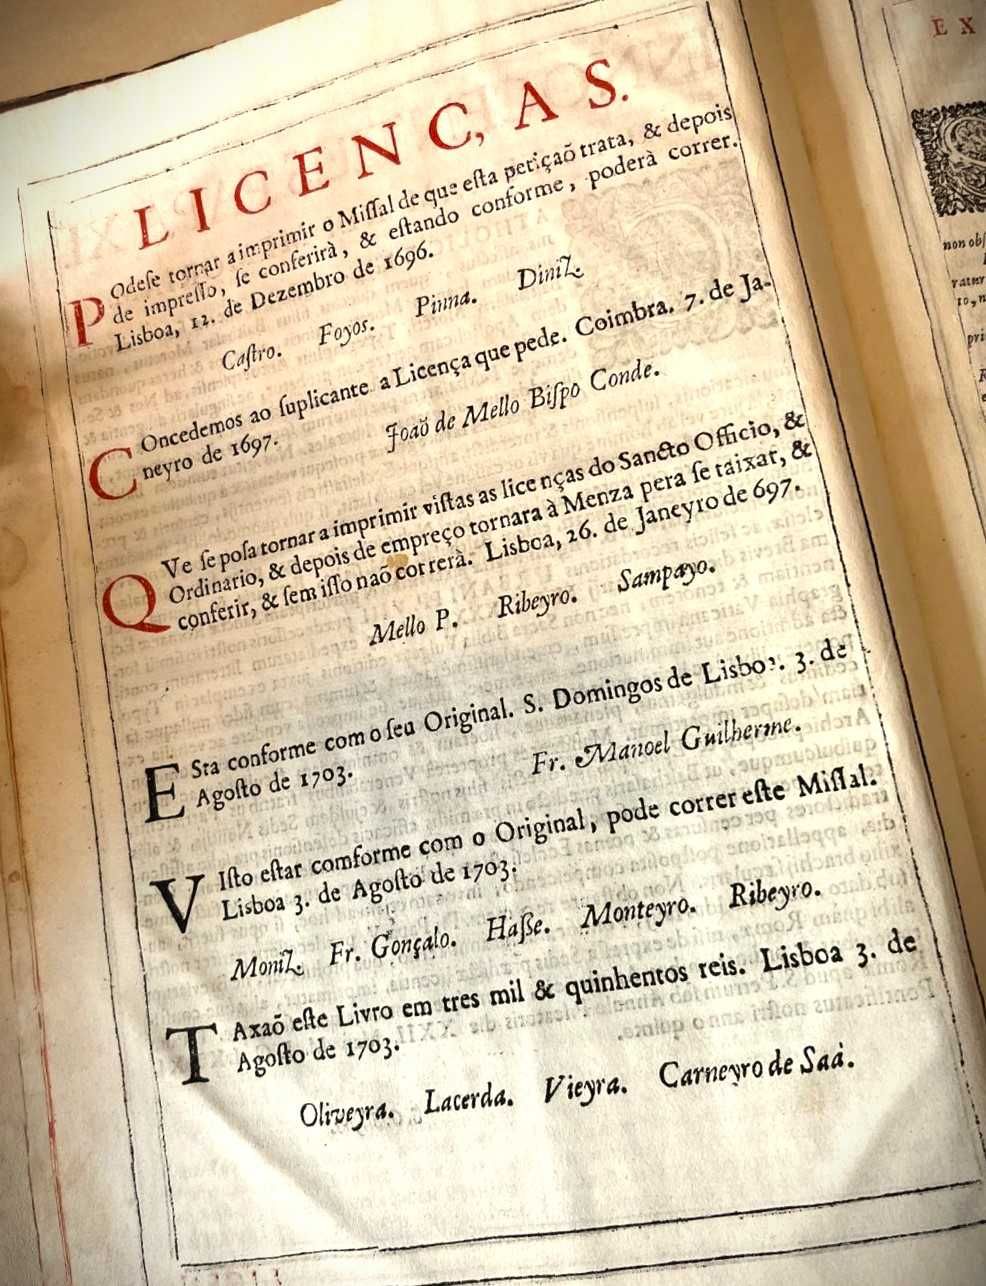 LICENC,AS.
POdese tornar a imprimir o Missal de que esta petiçaõ trata, & depois
de impresso, se conferirà, & estando conforme, poderà correr.
Lisboa, 12. de Dezembro de 1696.
Castro. Foyos. Pinna. Diniz.
COncedemos ao suplicante a Licença que pede. Coimbra. 7. de Ja-
neyro de 1697.
Joaõ de Mello Bispo Conde.
QVe se posa tornar a imprimir vistas as licenças do Sancto Officio, &
Ordinario, & depois de empreço tornara à Menza pera se taixar, &
conferir, & sem isso naõ correrà. Lisboa, 26. de Janeyro de 697.
Mello P. Ribeyro. Sampayo.
ESta conforme com o seu Original. S. Domingos de Lisboa. 3. de
Agosto de 1703.
Fr. Manoel Guilherme.
VIsto estar comforme com o Original, pode correr este Missal.
Lisboa 3. de Agosto de 1703.
Moniz Fr. Gonçalo. Hasse. Monteyro. Ribeyro.
TAxaõ este Livro em tres mil & quinhentos reis. Lisboa 3. de
Agosto de 1703.
Oliveyra. Lacerda. Vieyra. Carneyro de Saá.
EX
non obs